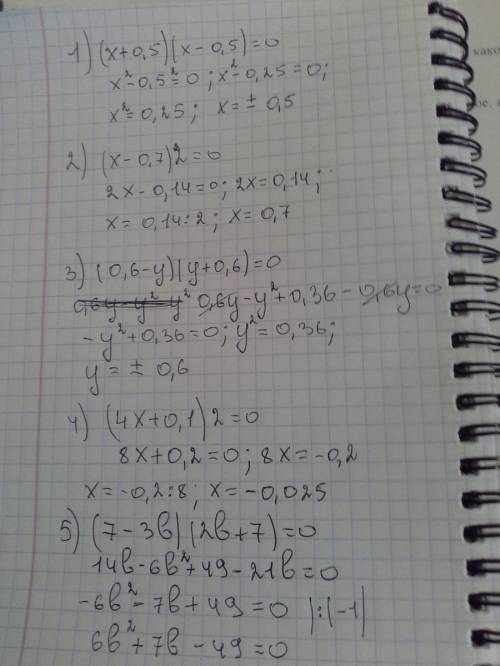 1) (x+0,5)(x-0,5)=0
x²-0,5²=0; x²-0,25=0;
x²=0,25; x=±0,5
2) (x-0,7)2=0
2x-0,14=0; 2x=0,14;
x=0,14:2; x=0,7
3) (0,6-y)(y+0,6)=0
0,6y-y² y² 0,6y-y²+0,36-0,6y=0
-y²+0,36=0; y²=0,36;
y=±0,6
4) (4x+0,1)2=0
8x+0,2=0; 8x=-0,2
x=-0,2:8; x=-0,025
5) (7-3в)(2в+7)=0
14в-6в²+49-21в=0
-6в²-7в+49=0 |:(-1)
6в²+7в-49=0
како